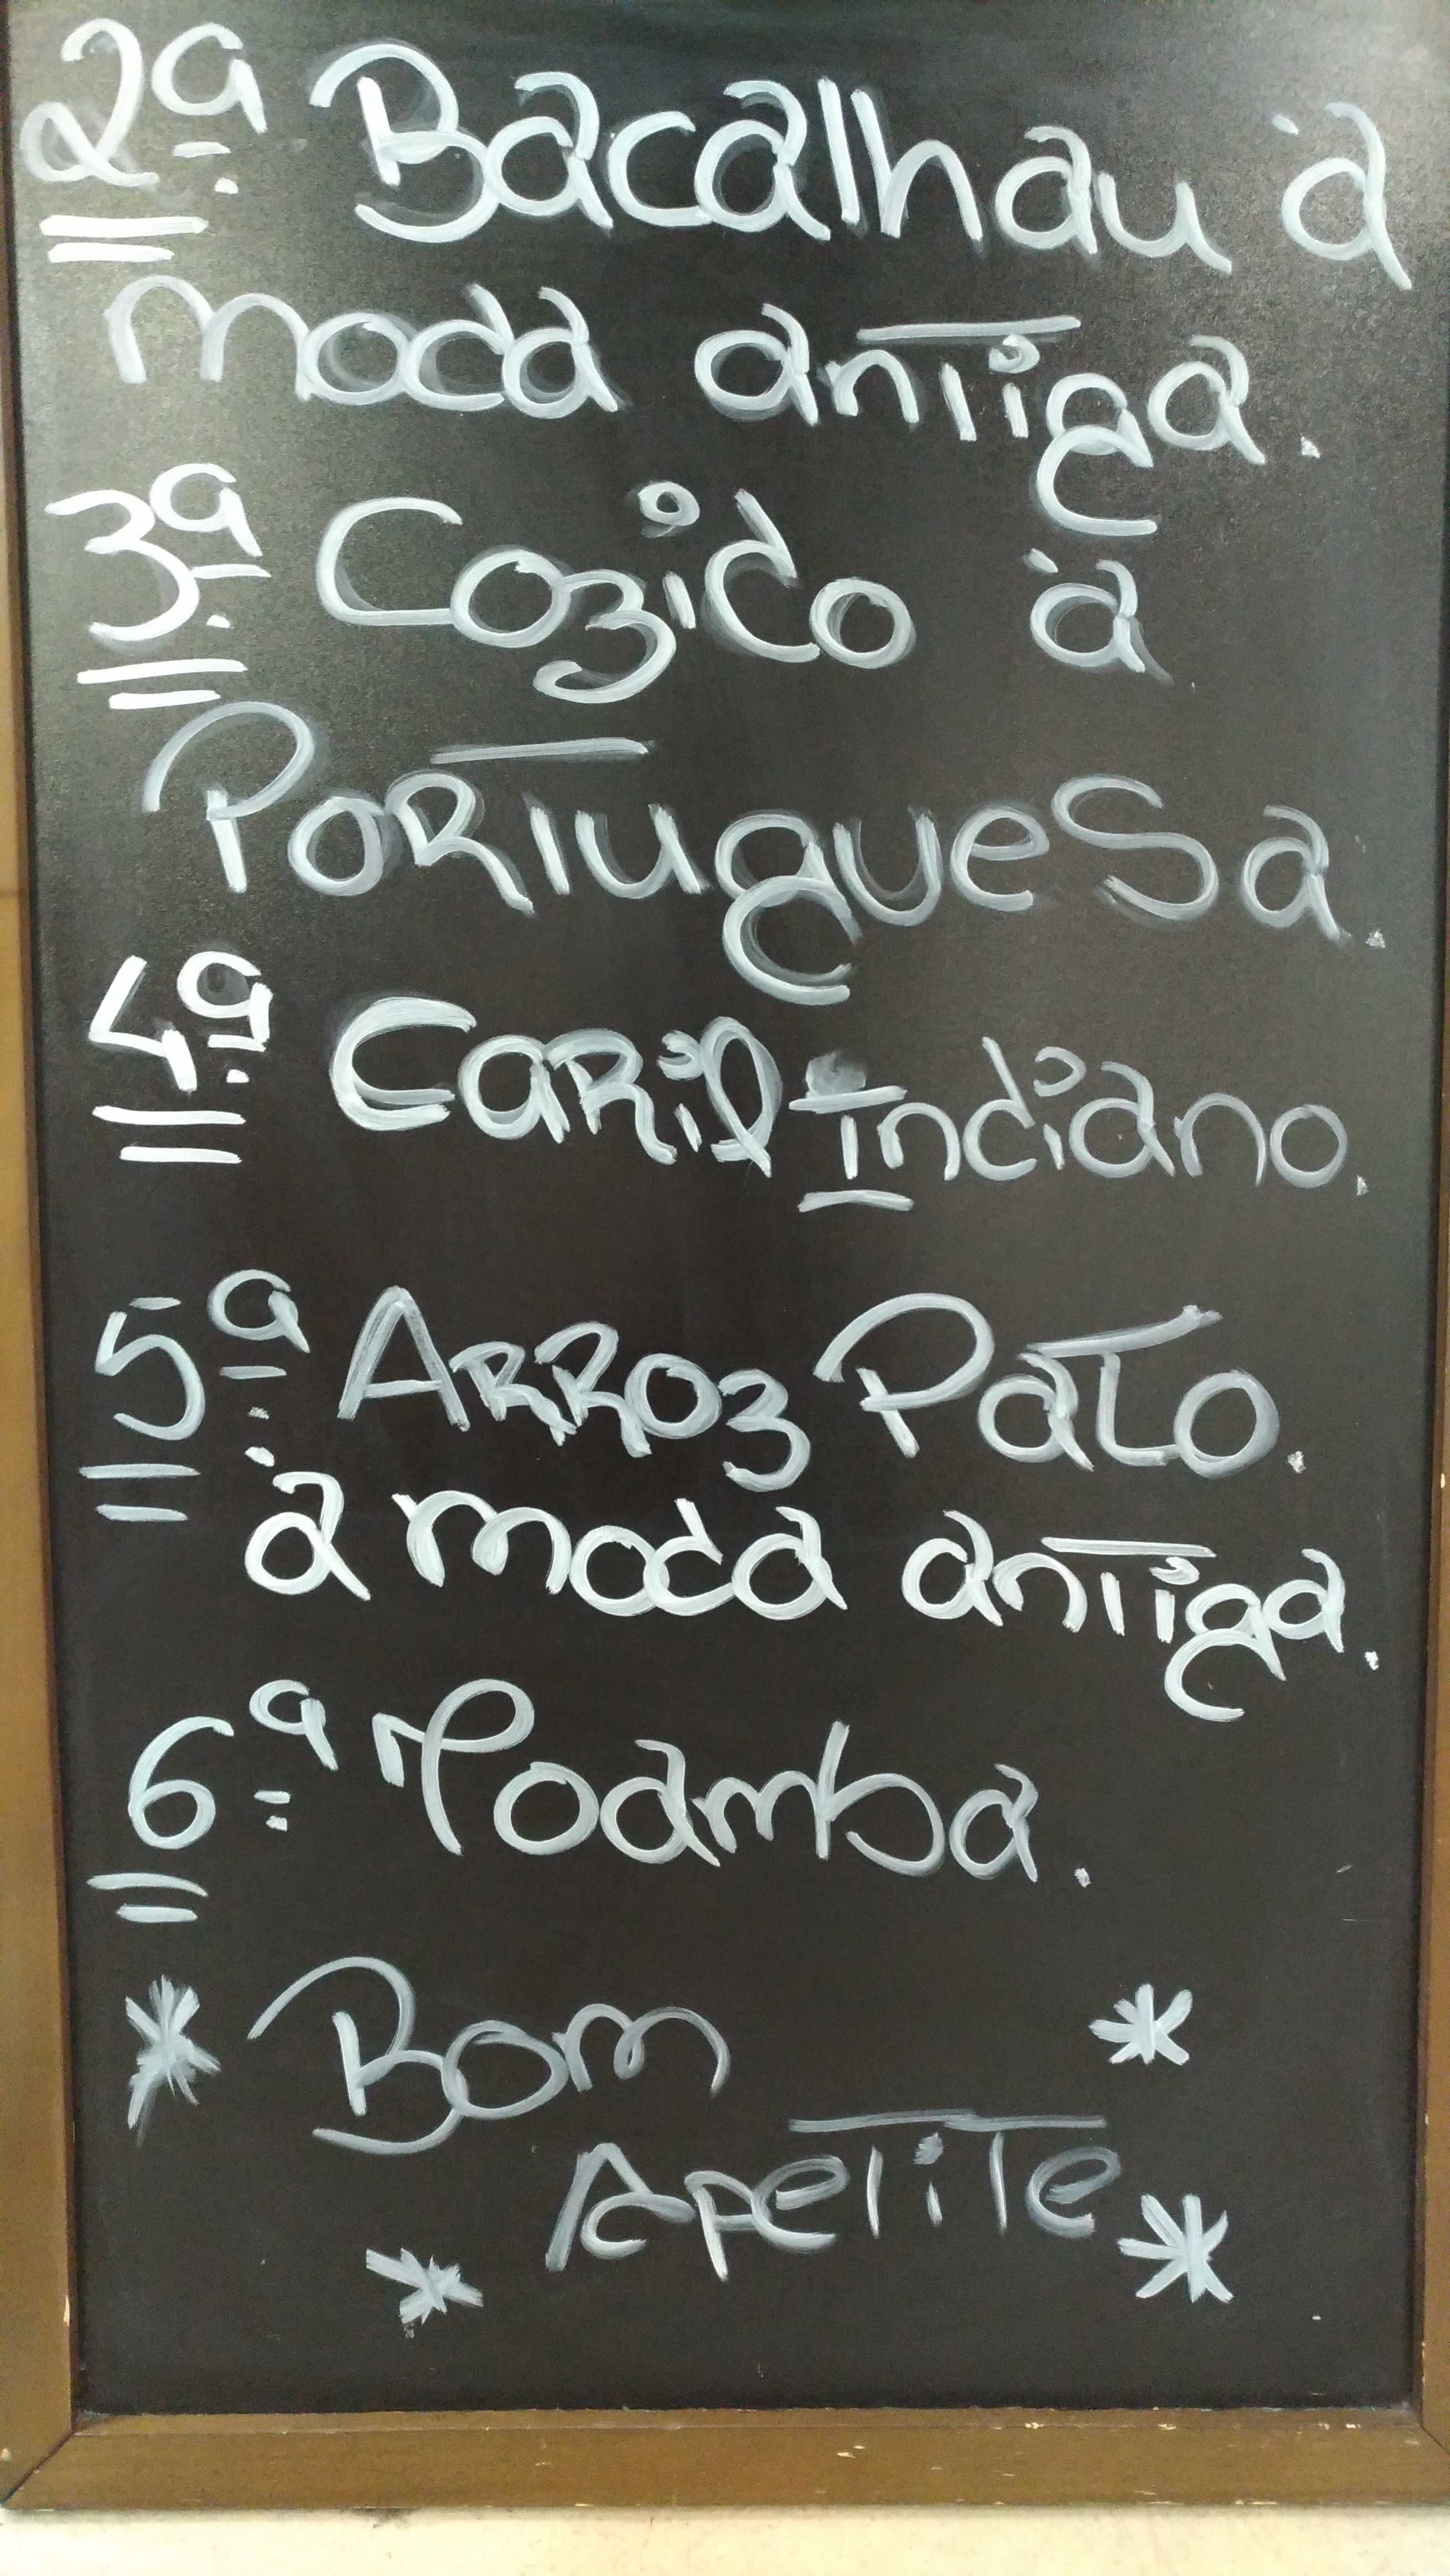 2ª Bacalhau à
moda antiga.
3ª Cozido à
Portuguesa.
4ª Caril Indiano.
5ª Arroz Pato.
à moda antiga.
6ª Moamba.
* Bom *
Apetite
* *